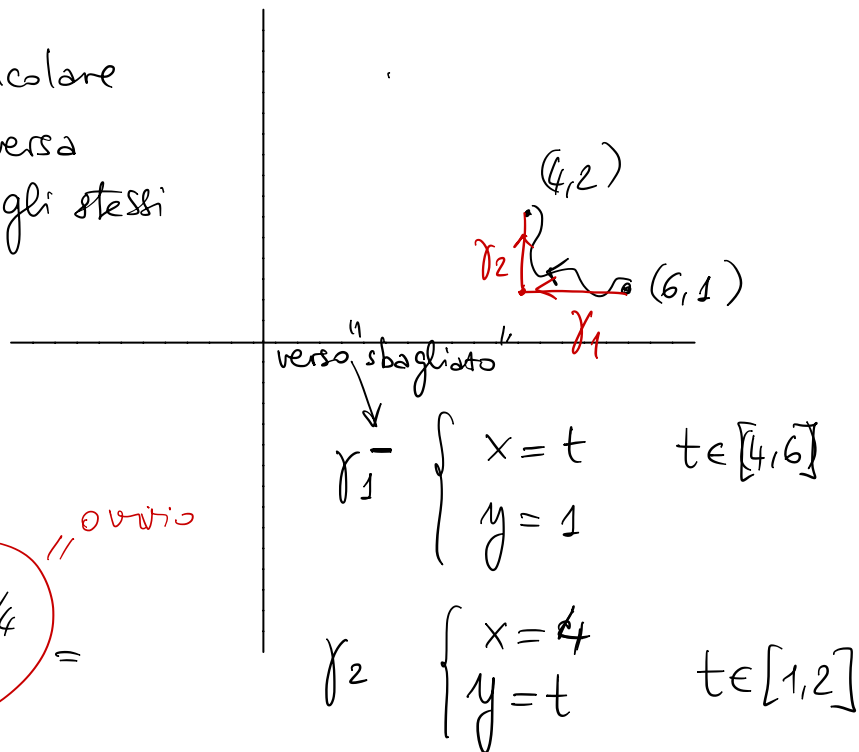 colare
versa
gli stessi
(4,2)
γ2
(6,1)
γ1
"verso sbagliato"
γ1⁻ { x = t t ∈ [4,6]
y = 1
"ovvio"
/4
=
γ2 { x = 4
y = t t ∈ [1,2]